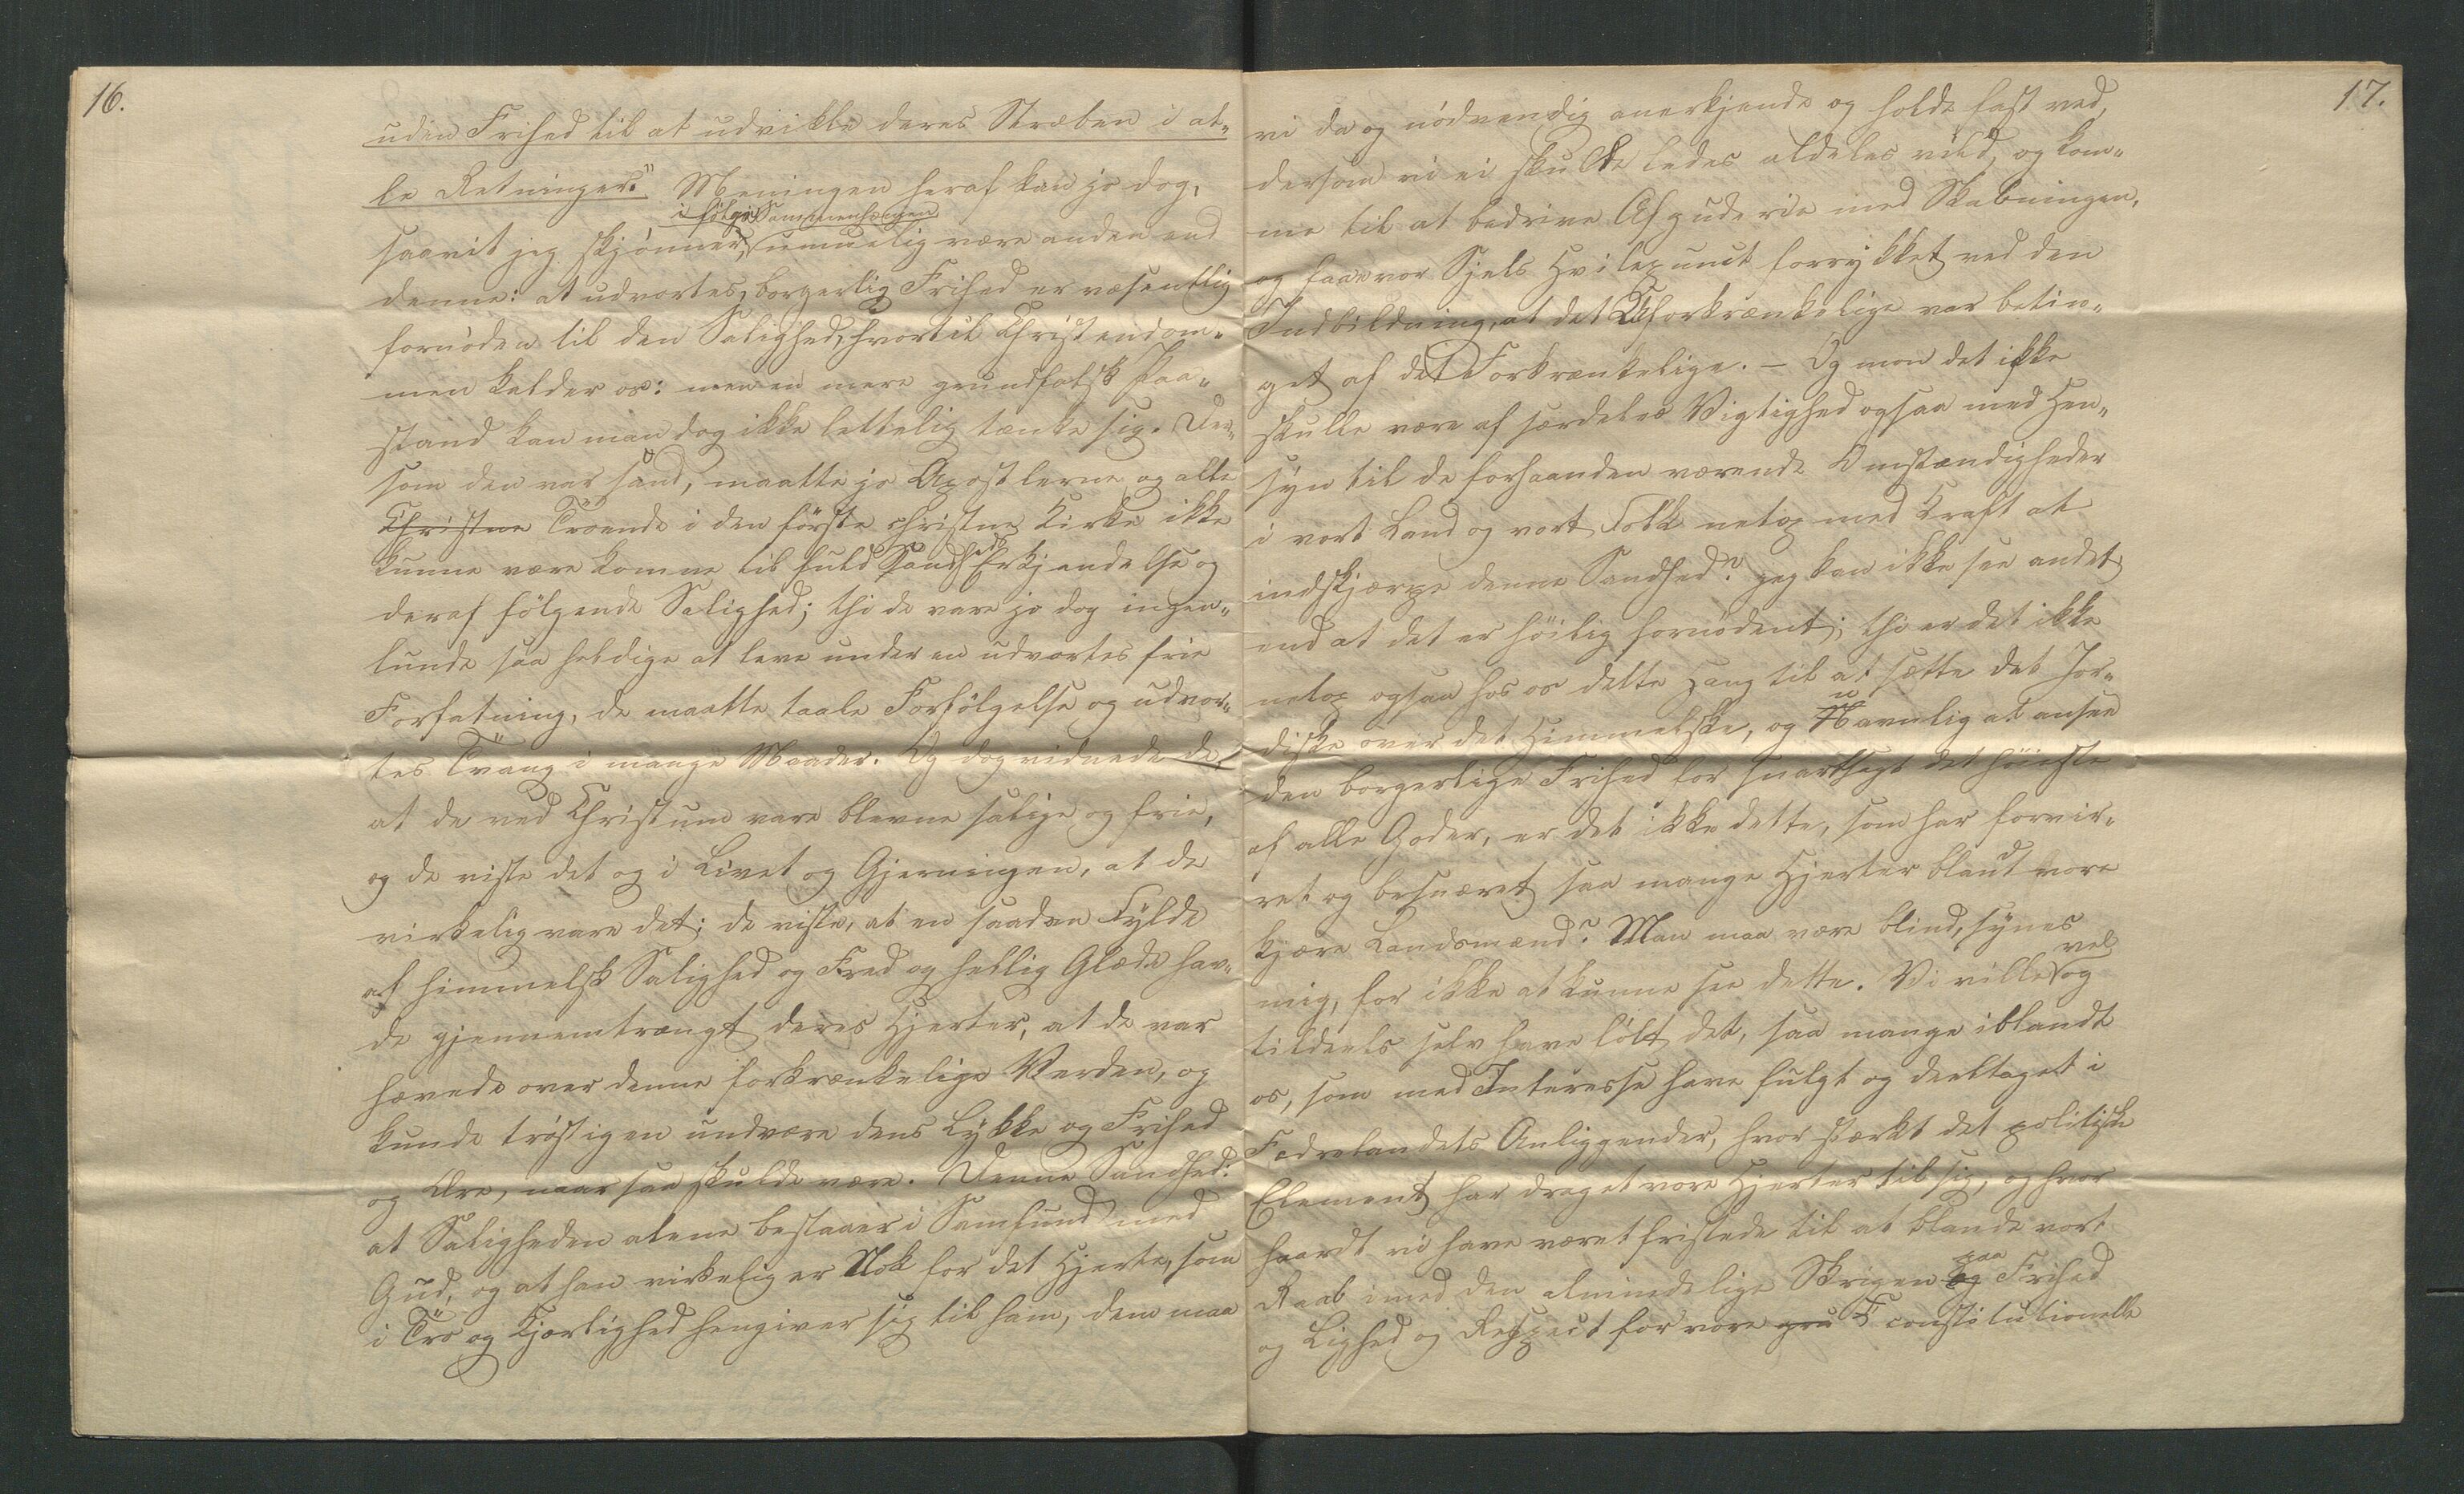 16.
uden Frihed til at udvikle deres Stræben i al-
le Retninger." Meningen heraf kan jo dog,
i følge Sammenhængen
saavit jeg skjønner, umuelig være anden end
denne: at udvortes, borgerlig Frihed er væsentlig
fornöden til den Salighed, hvortil Christendom-
men kalder os: men en mere grundfalsk Paa-
stand kan man dog ikke lettelig tænke sig. Der-
som den var sand, maatte jo Apostlerne og alle
Christne Troende i den förste christne Kirke ikke
kunne være komne til fuld Sandheds Erkjendelse og
deraf fölgende Salighed; thi de vare jo dog ingen-
lunde saa heldige at leve under en udvortes frie
Forfatning, de maatte taale Forfölgelse og udvor-
tes Tvang i mange Maader. Og dog vidnede de,
at de ved Christum vare blevne salige og frie,
og de viste det og i Livet og Gjerningen, at de
virkelig vare det; de viste, at en saadan Fylde
af himmelsk Salighed og Fred og hellig Glæde hav-
de gjennemtrængt deres Hjerter, at de var
hævede over denne forkrænkelige Verden, og
kunde tröstigen undvære dens Lykke og Frihed
og Ære, naar saa skulde være. Denne Sandhed:
at Saligheden alene bestaaer i Samfund med
Gud, og at han virkelig er Nok for det Hjerte, som
i Tro og Kjærlighed hengiver sig til ham, dem maa
17.
vi da og nödvendig anerkjende og holde fast ved,
dersom vi ei skulde ledes aldeles vild, og kom-
me til at bedrive Afguderie med Skabningen,
og faae vor Sjels Hvilepunct forrykket ved den
Indbildning, at det Uforkrænkelige var betin-
get af det Forkrænkelige. — Og mon det ikke
skulle være af særdeles Vigtighed ogsaa med Hen-
syn til de forhaanden værende Omstændigheder
i vort Land og vort Folk netop med Kraft at
indskjærpe denne Sandhed? jeg kan ikke see andet
end at det er höilig fornödent; thi er det ikke
netop ogsaa hos os dette Hang til at sætte det Jor-
diske over det Himmelske, og navnlig at ansee
den borgerlige Frihed for snartsagt det höieste
af alle Goder, er det ikke dette, som har forvir-
ret og besnæret saa mange Hjerter blandt vore
kjære Landsmænd? Man maa være blind, synes
mig, for ikke at kunne see dette. Vi ville vel og
tildeels selv have fölt det, saa mange iblandt
os, som med Interesse have fulgt og deeltaget i
Fædrelandets Anliggender, hvor stærkt det politiske
Element har draget vore Hjerter til sig, og hvor
haardt vi have været fristede til at blande vort
Raab i med den almindelige Skrigen og paa Frihed
og Lighed og Respect for vore gru constitutionelle